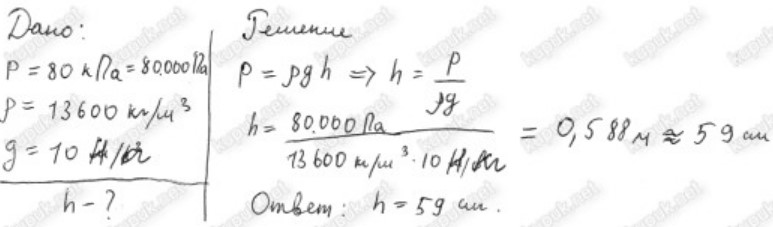 Дано:
P = 80 кПа = 80.000 Па
ρ = 13600 кг/м³
g = 10 Н/кг
h - ?
Решение
P = ρgh => h = P/ρg
h = 80.000 Па / 13600 кг/м³ · 10 Н/кг = 0,588 м ≈ 59 см
Ответ: h = 59 см.